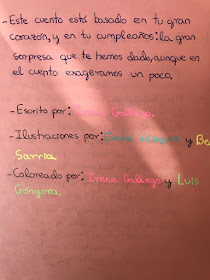 -Este cuento está basado en tu gran
corazón, y en tu cumpleaños: la gran
sorpresa que te hemos dado, aunque en
el cuento exageramos un poco.
-Escrito por: Irene Gallego.
-Ilustraciones por: y Be
Sarria
-Coloreado por: Irene Gallego y Luis
Góngora.